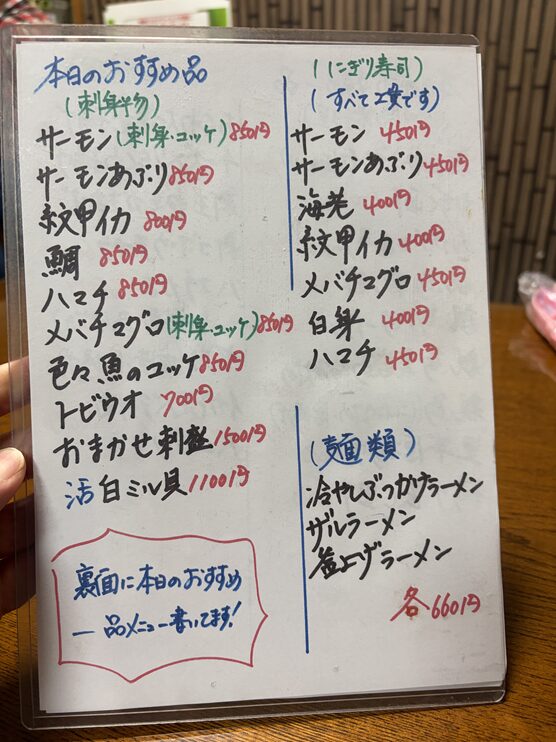 本日のおすすめ品
(刺身物)
サーモン(刺身・ユッケ)850円
サーモンあぶり850円
紋甲イカ 800円
鯛 850円
ハマチ 850円
メバチマグロ(刺身・ユッケ)850円
色々魚のユッケ850円
トビウオ 700円
おまかせ刺盛1500円
活白ミル貝1100円
裏面に本日のおすすめ
一品メニュー書いてます!
(にぎり寿司)
(すべて2貫です)
サーモン 450円
サーモンあぶり450円
海老 400円
紋甲イカ 400円
メバチマグロ450円
白身 400円
ハマチ 450円
(麺類)
冷やしぶっかけラーメン
ザルラーメン
釜上げラーメン
各660円